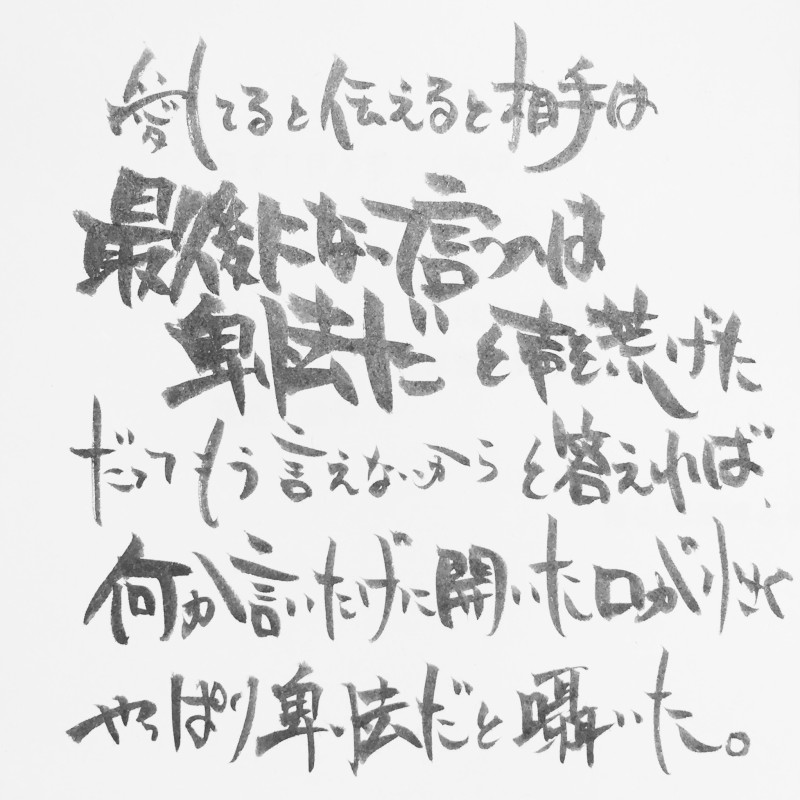 愛してると伝えると相手は
最後にな言うのは
卑怯だと声を荒げた
だってもう言えないからと答えれば
何か言いたげに開いた口が小さく
やっぱり卑怯だと囁いた。